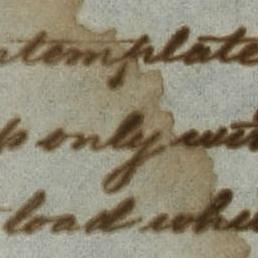 ntemplate
p only wit
load whe